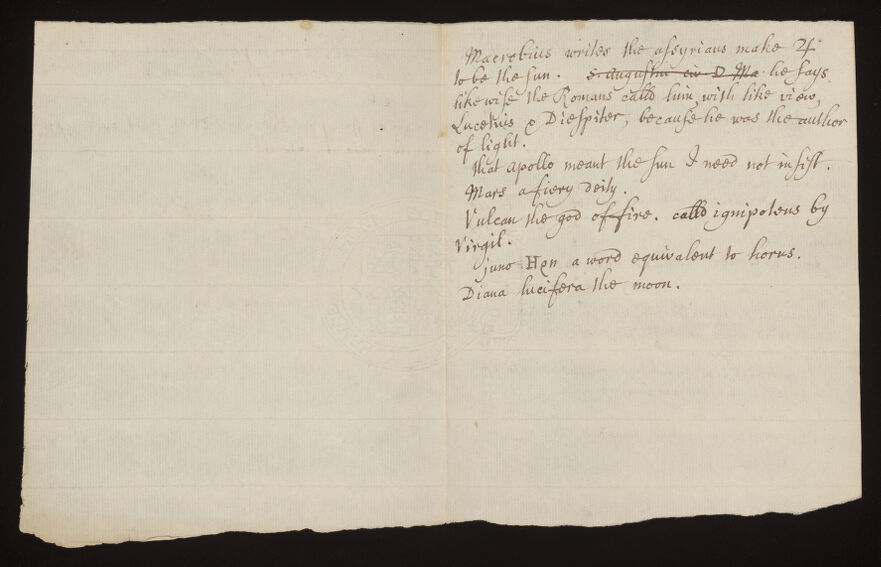 Macrobius writes the assyrians make ♃
to be the sun. S. Augustin civ D Ma he says
likewise the Romans calld him, with like view,
Lucetius & Diespiter, because he was the author
of light.
that apollo meant the sun I need not insist.
Mars a fiery deity.
Vulcan the god of fire. calld ignipotens by
Virgil.
juno Ηρη a word equivalent to horus.
Diana lucifera the moon.